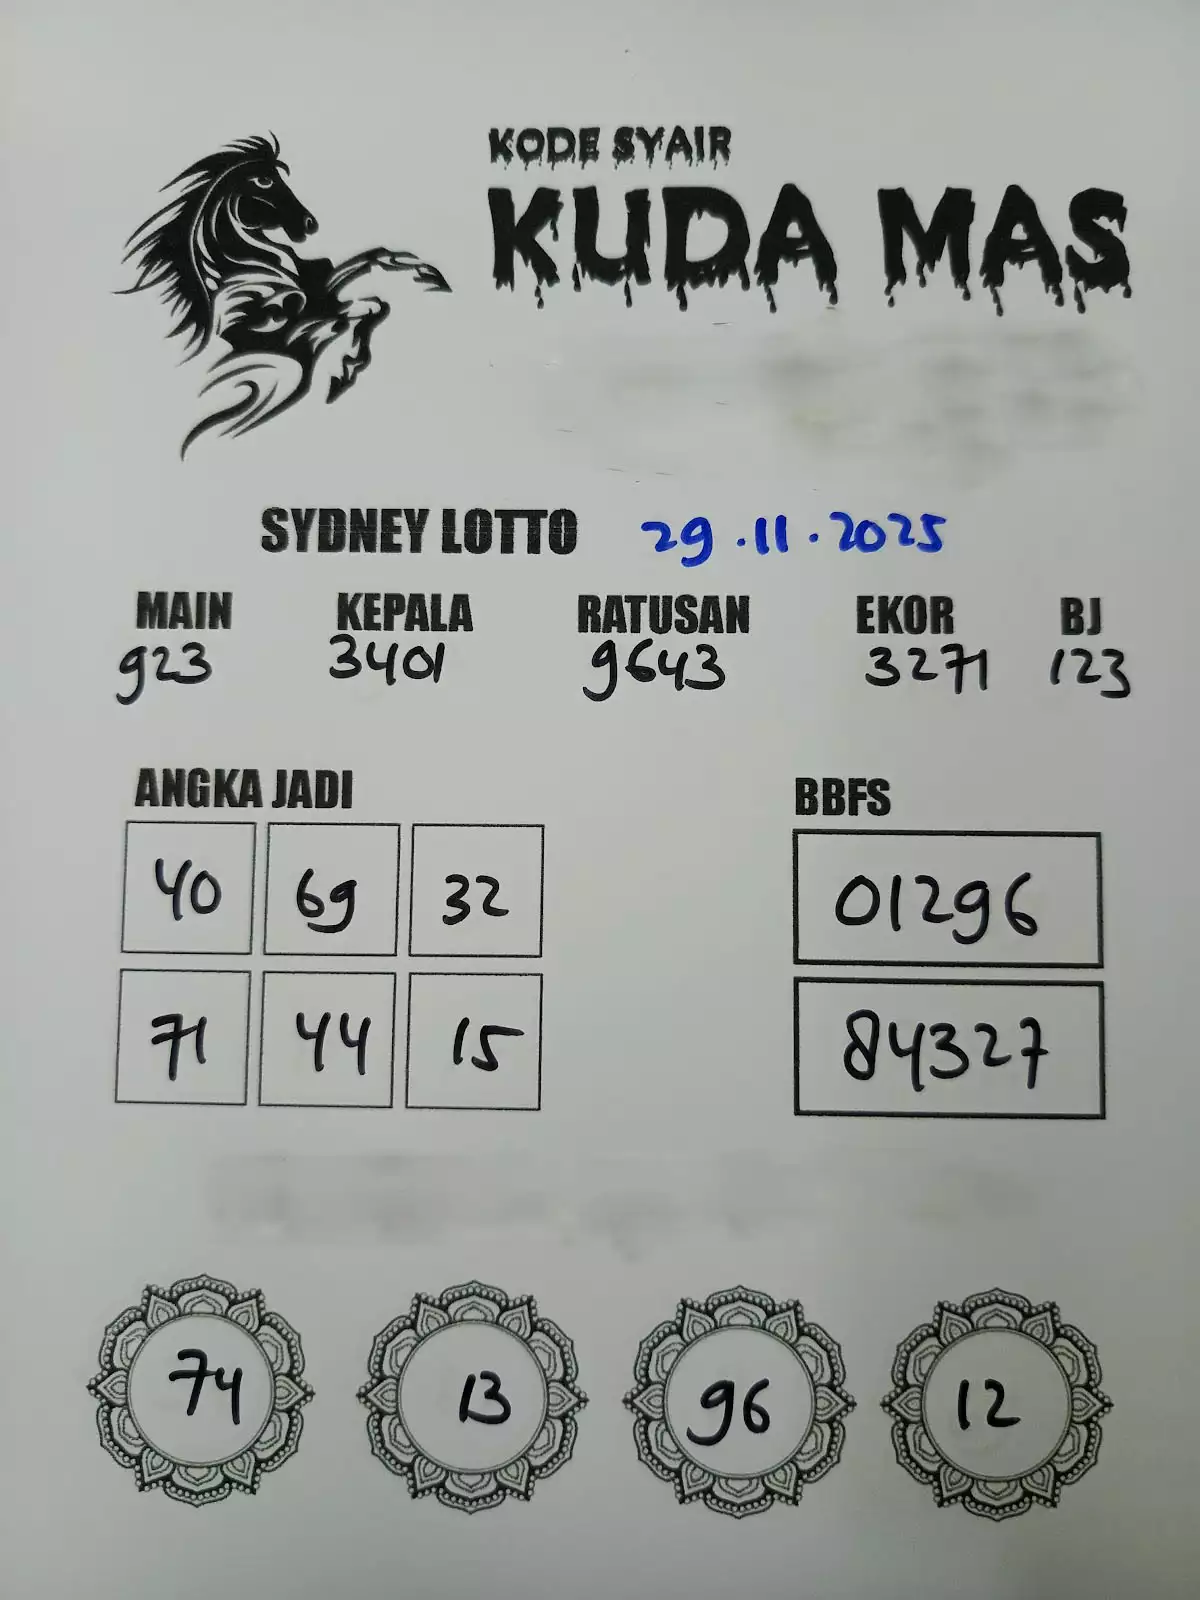 KODE SYAIR
KUDA MAS
SYDNEY LOTTO 29.11.2025
MAIN KEPALA RATUSAN EKOR BJ
923 3401 9643 3271 123
ANGKA JADI BBFS
40 69 32 01296
71 44 15 84327
74 13 96 12